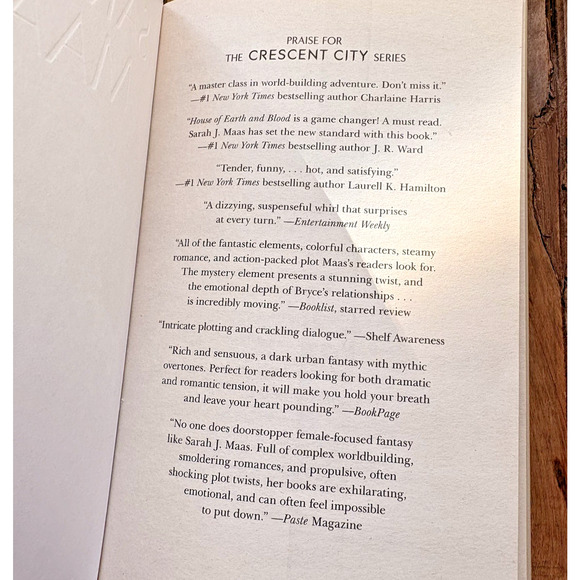 PRAISE FOR
THE CRESCENT CITY SERIES
“A master class in world-building adventure. Don’t miss it.”
—#1 New York Times bestselling author Charlaine Harris
“House of Earth and Blood is a game changer! A must read.
Sarah J. Maas has set the new standard with this book.”
—#1 New York Times bestselling author J. R. Ward
“Tender, funny, . . . hot, and satisfying.”
—#1 New York Times bestselling author Laurell K. Hamilton
“A dizzying, suspenseful whirl that surprises
at every turn.” —Entertainment Weekly
“All of the fantastic elements, colorful characters, steamy
romance, and action-packed plot Maas’s readers look for.
The mystery element presents a stunning twist, and
the emotional depth of Bryce’s relationships . . .
is incredibly moving.” —Booklist, starred review
“Intricate plotting and crackling dialogue.” —Shelf Awareness
“Rich and sensuous, a dark urban fantasy with mythic
overtones. Perfect for readers looking for both dramatic
and romantic tension, it will make you hold your breath
and leave your heart pounding.” —BookPage
“No one does doorstopper female-focused fantasy
like Sarah J. Maas. Full of complex worldbuilding,
smoldering romances, and propulsive, often
shocking plot twists, her books are exhilarating,
emotional, and can often feel impossible
to put down.” —Paste Magazine